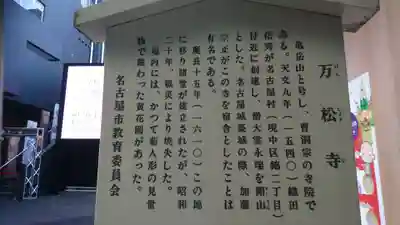 万松寺
亀岳山と号し、曹洞宗の寺院で
ある。天文九年(一五四〇)織田
信秀が名古屋村(現中区錦二丁目)
付近に創建し、僧大雲永瑞を開山
とした。名古屋城築城の際、加藤
清正がこの寺を宿舎としたことは
有名である。
慶長十五年(一六一〇)この地
に移り諸堂が建立されたが、昭和
二十年、戦災により焼失した。
境内には、かつて菊人形の見世
物で賑わった黄花園があった。
名古屋市教育委員会